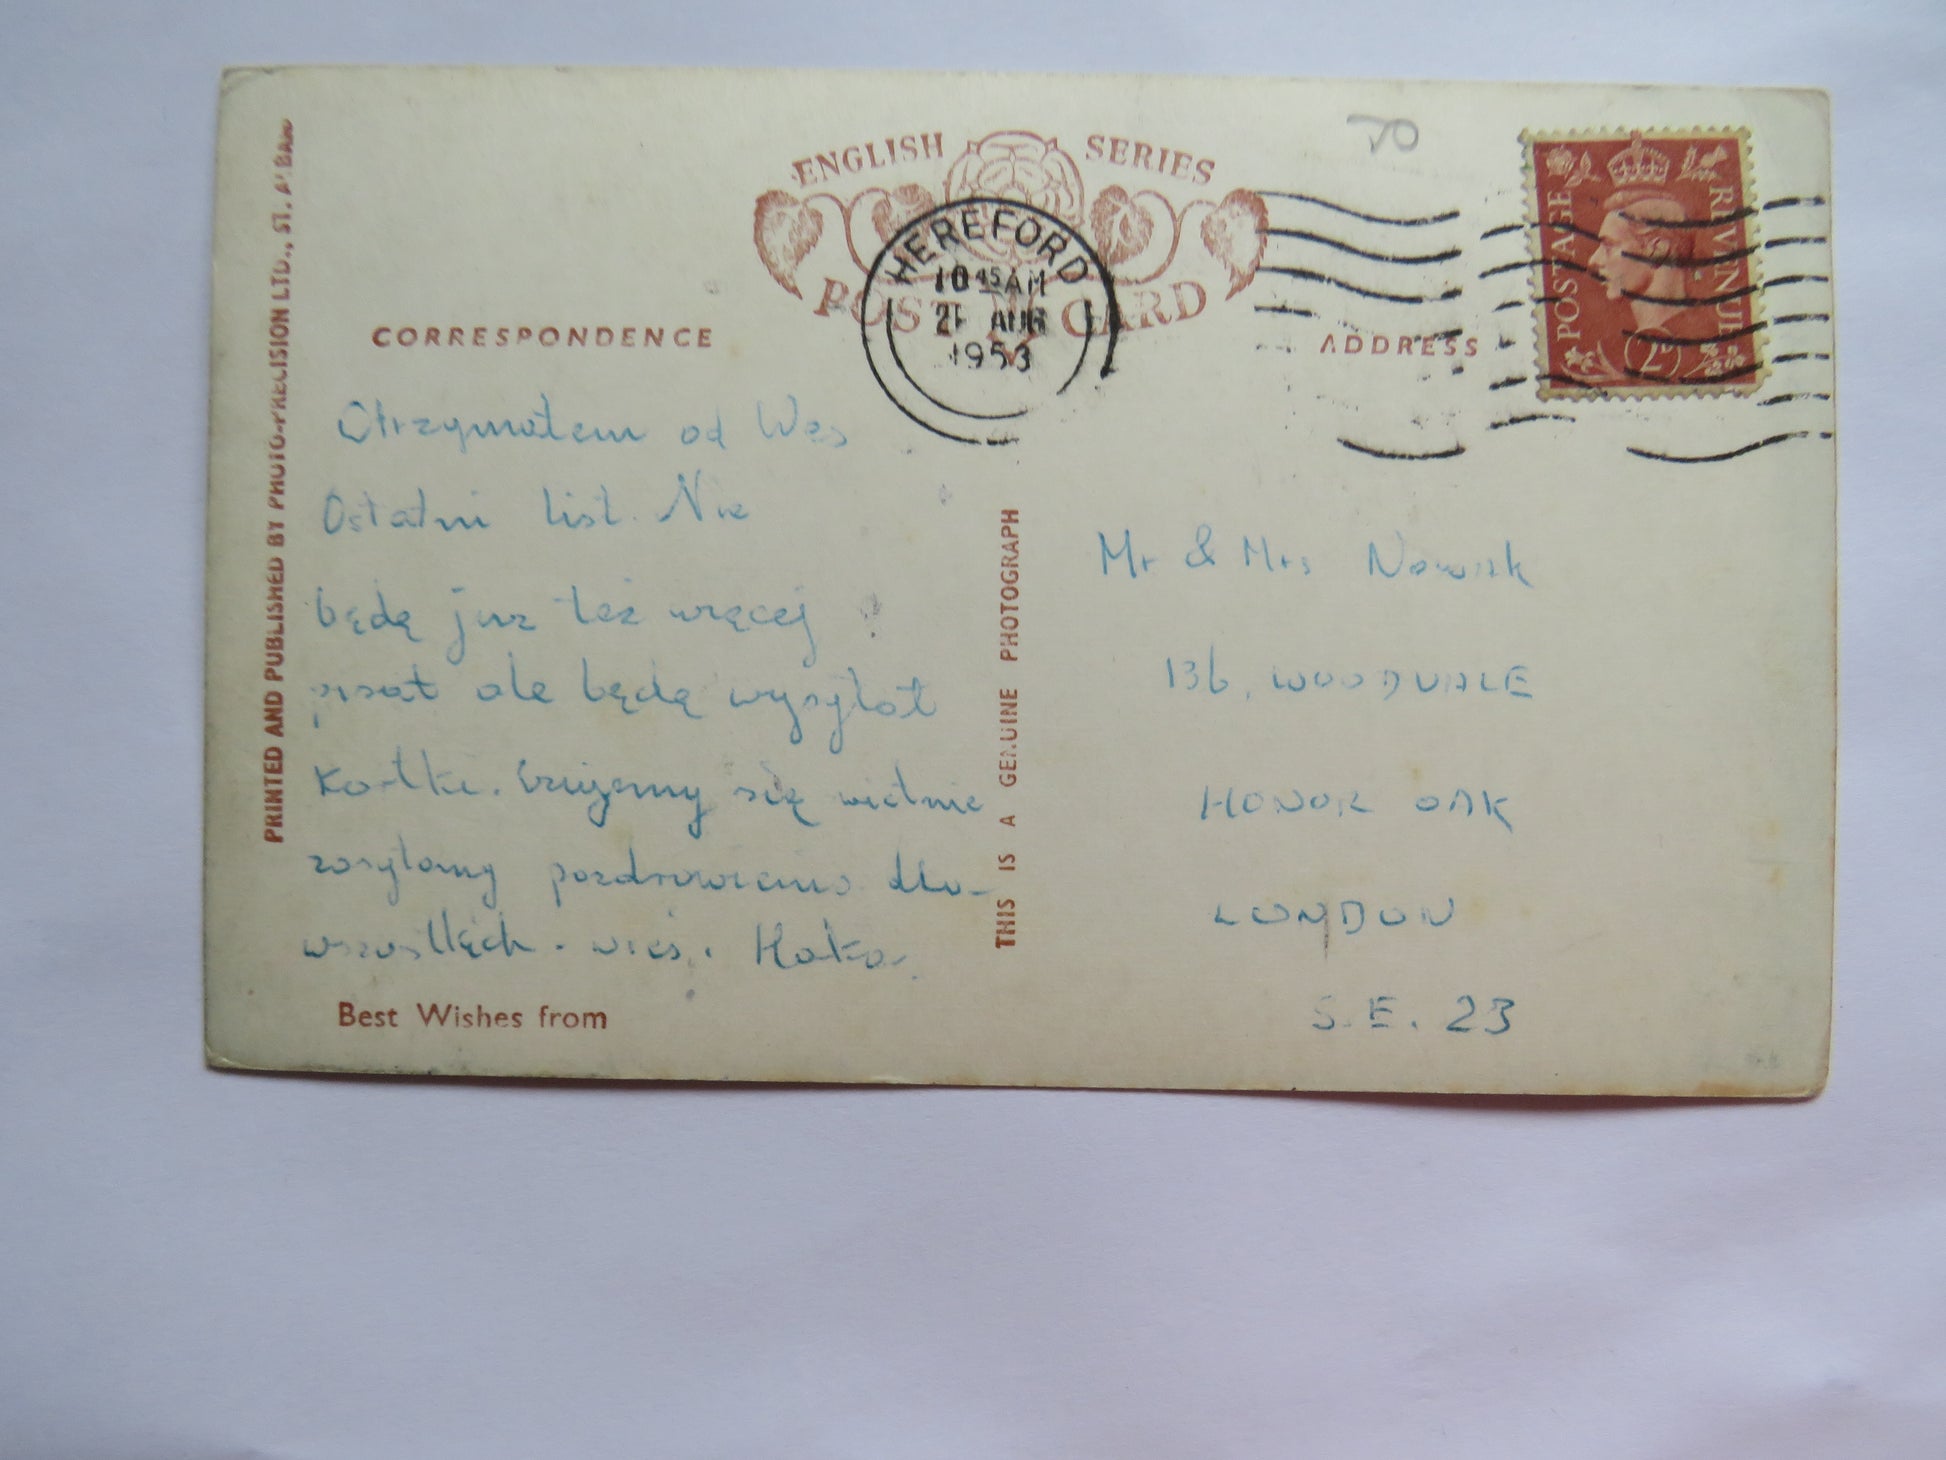 PRINTED AND PUBLISHED BY PHOTO-PRECISION LTD., ST. ALBANS
ENGLISH SERIES
POST CARD
HEREFORD
10 45 AM
21 AUG
1953
POSTAGE REVENUE
2D
CORRESPONDENCE
ADDRESS
Otrzymałem od Was
Ostatni list. Nie
będę już też więcej
pisał ale będę wysyłał
Kartki. bawimy się
zasyłamy pozdrowienia dla
wszystkich.
Best Wishes from
THIS IS A GENUINE PHOTOGRAPH
Mr & Mrs Nowak
136, WOODVALE
HONOR OAK
LONDON
S.E. 23